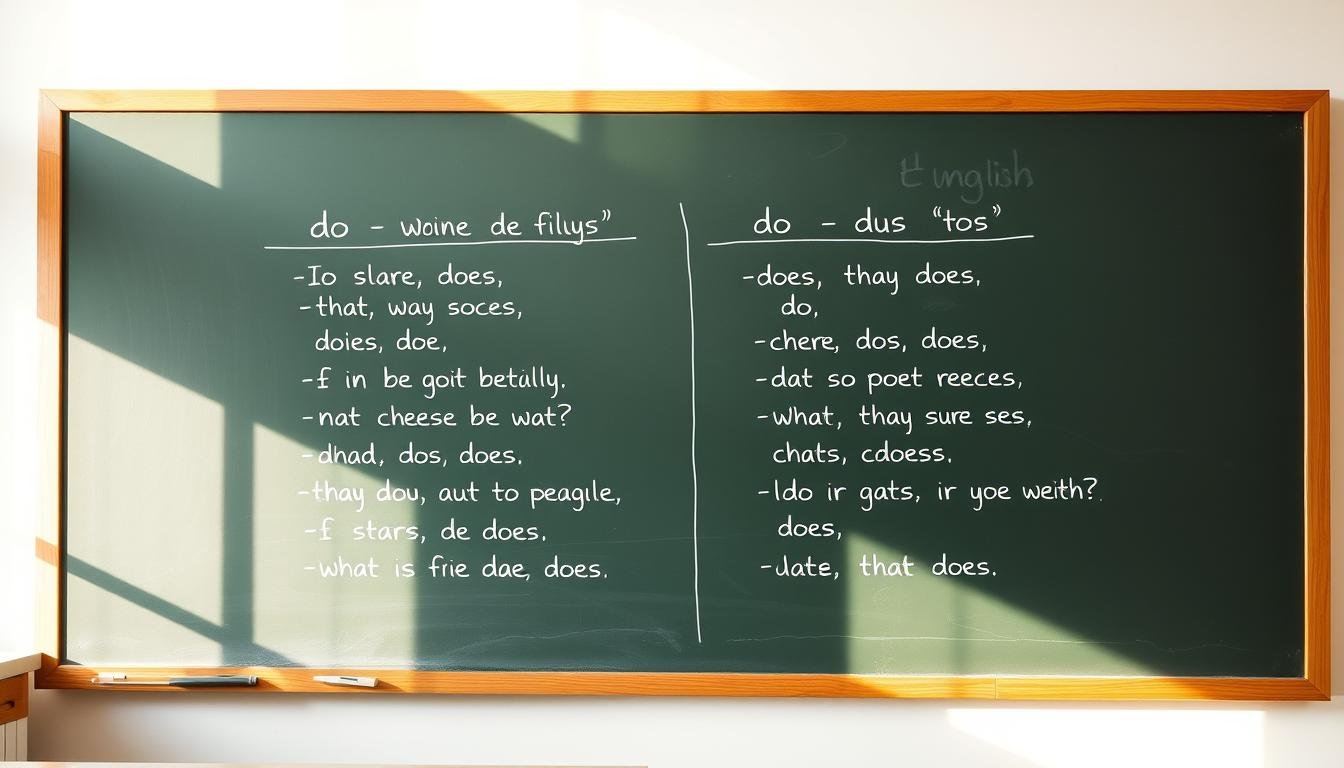 English
do - woine de filiys”
-Io slare, does,
-that, way soces,
doies, doe,
-f in be goit betally.
-nat cheese be wat?
-dhad, dos, does.
-thay dou, aut to peagile,
-f stars, de does.
-what is frie dae, does.
do - dus “tos”
-does, thay does,
do,
-chere, dos, does,
-dat so poet reeces,
-what, thay sure ses,
chats, cdoess.
-Ido ir gats, ir yoe weith?
does,
-Jate, that does.